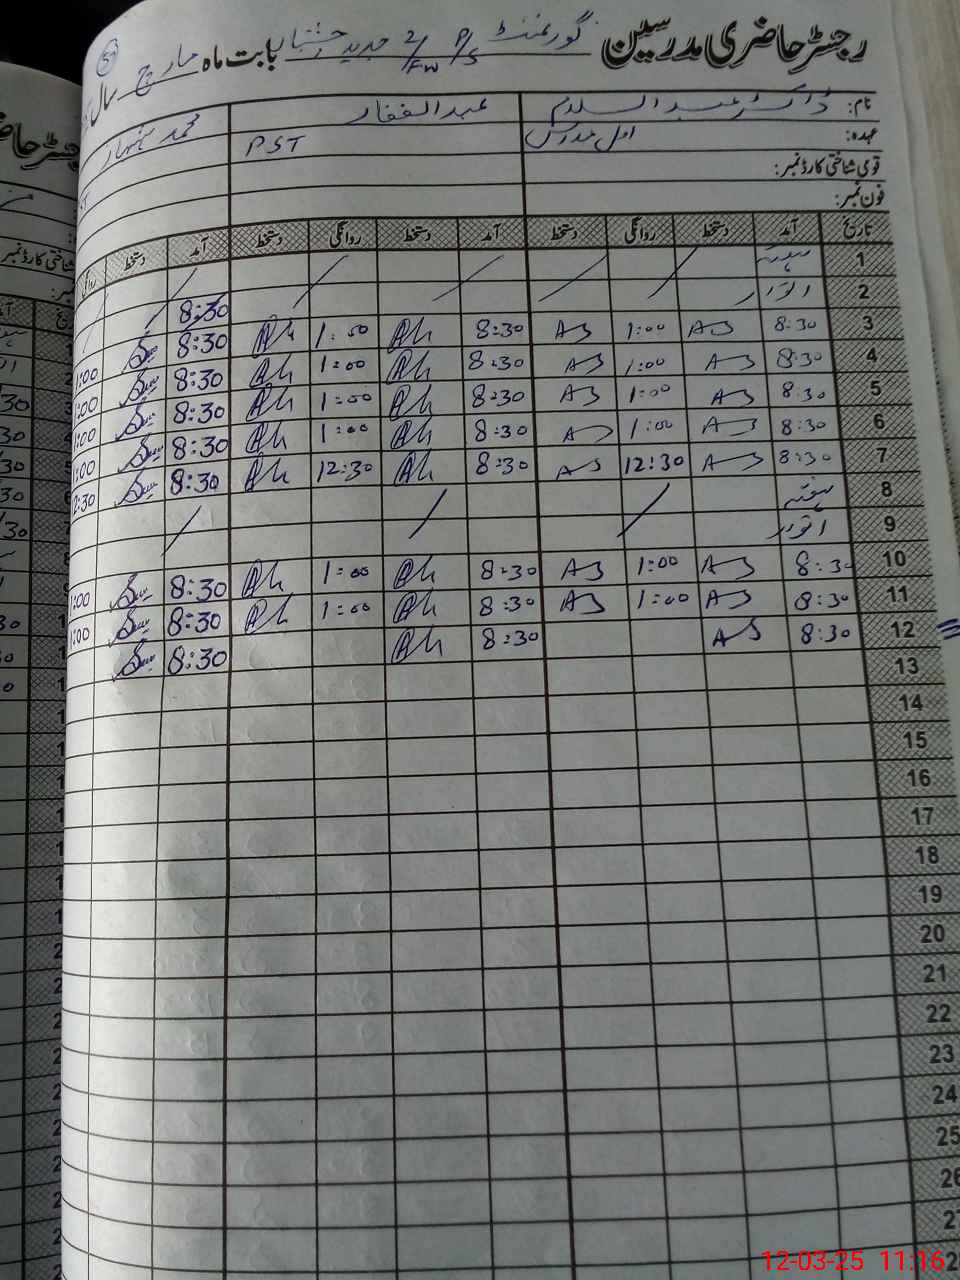 رجسٹر حاضری مدرسین گورنمنٹ P/S 2/FW جدید بابت ماہ مارچ سال
نام: ڈاکٹر عبدالسلام عبدالغفار محمد
عہدہ: اول مدرس PST
قومی شناختی کارڈ نمبر:
فون نمبر:
تاریخ آمد دستخط روانگی دستخط آمد دستخط روانگی دستخط آمد دستخط
1 ہفتہ
2 اتوار 8:30
3 8:30 AS 1:00 AS 8:30 Ah 1:00 Ah 8:30
4 8:30 AS 1:00 AS 8:30 Ah 1:00 Ah 8:30 1:00
5 8:30 AS 1:00 AS 8:30 Ah 1:00 Ah 8:30 1:00
6 8:30 AS 1:00 AS 8:30 Ah 1:00 Ah 8:30 1:00
7 8:30 AS 12:30 AS 8:30 Ah 12:30 Ah 8:30 1:00
8 ہفتہ 2:30
9 اتوار
10 8:30 AS 1:00 AS 8:30 Ah 1:00 Ah 8:30 1:00
11 8:30 AS 1:00 AS 8:30 Ah 1:00 Ah 8:30 1:00
12 8:30 AS 8:30 Ah 8:30
13
14
15
16
17
18
19
20
21
22
23
24
25
26
27
12-03-25 11:16